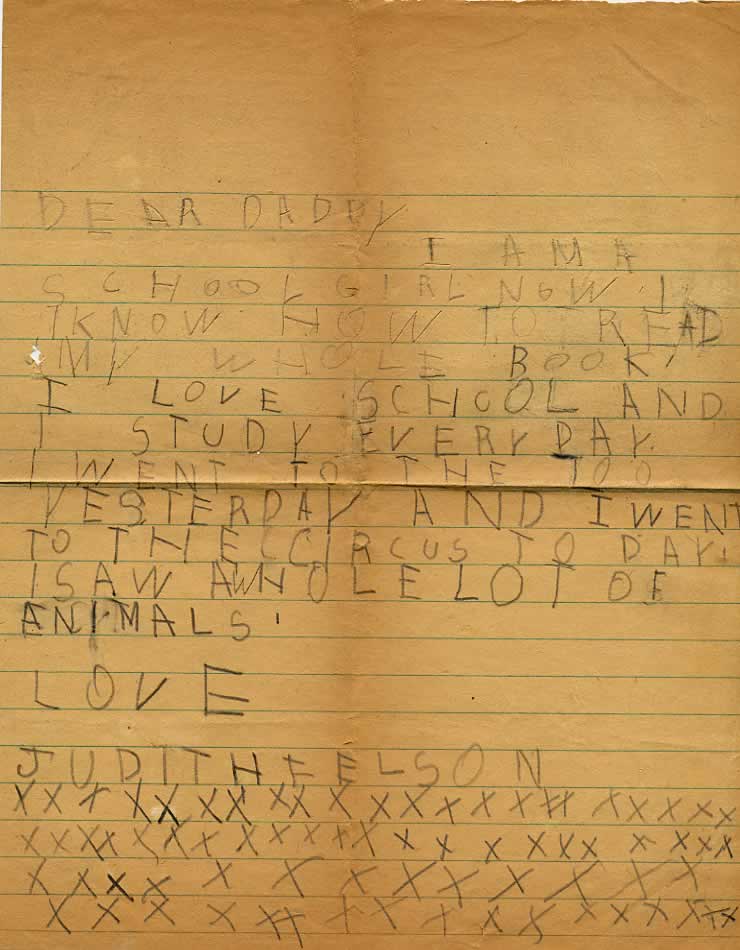 DEAR DADDY
I AM A
SCHOOL GIRL NOW.
I KNOW HOW TO READ
MY WHOLE BOOK.
I LOVE SCHOOL AND
I STUDY EVERY DAY.
I WENT TO THE TOO
YESTERDAY AND I WENT
TO THE CIRCUS TO DAY.
I SAW A WHOLE LOT OF
ANIMALS.
LOVE
JUDITH EELSON
X X X X X X X X X X X X X X X X X X X X X X
X X X X X X X X X X X X X X X X X X X X X X X
X X X X X X X X X X X X X X
X X X X X X X X X X X X X X X X X